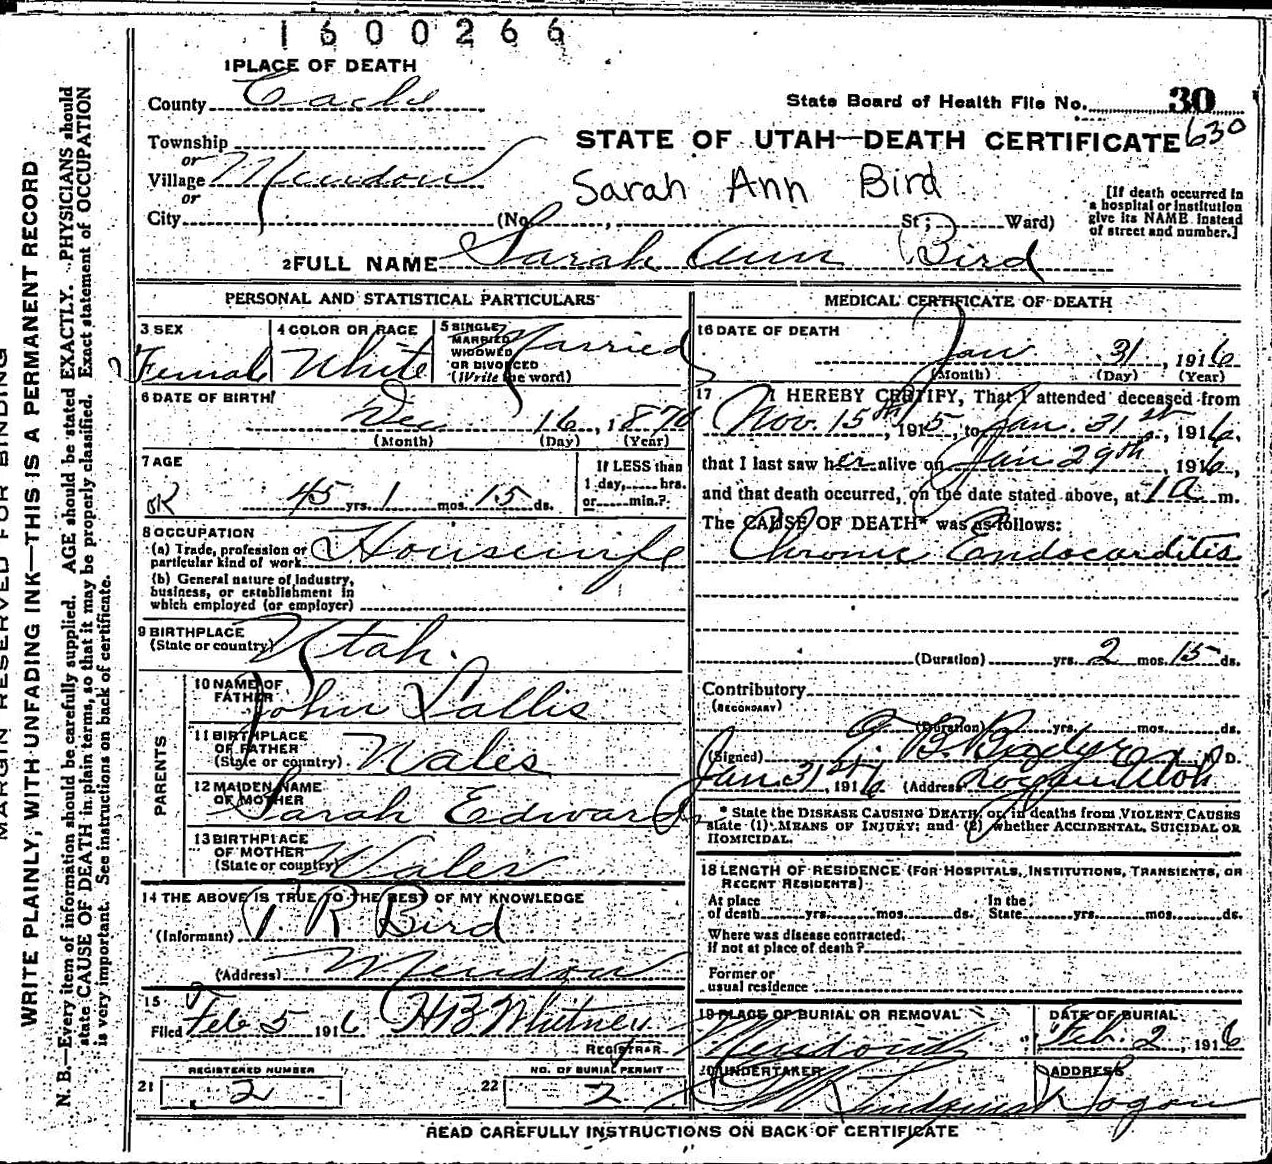 1600266
1 PLACE OF DEATH
County Cache
State Board of Health File No. 30
Township
or
Village Mendon
or
City
STATE OF UTAH—DEATH CERTIFICATE 630
Sarah Ann Bird
(No. , St; Ward)
[If death occurred in
a hospital or institution
give its NAME instead
of street and number.]
2 FULL NAME Sarah Ann Bird
PERSONAL AND STATISTICAL PARTICULARS
3 SEX
Female
4 COLOR OR RACE
White
5 SINGLE
MARRIED
WIDOWED
OR DIVORCED
(Write the word)
Married
6 DATE OF BIRTH
Dec 16, 1870
(Month) (Day) (Year)
7 AGE
OK 45 yrs. 1 mos. 15 ds.
If LESS than
1 day, hrs.
or min.?
8 OCCUPATION
(a) Trade, profession or
particular kind of work Housewife
(b) General nature of Industry,
business, or establishment in
which employed (or employer)
9 BIRTHPLACE
(State or country) Utah.
PARENTS
10 NAME OF
FATHER John Wallis
11 BIRTHPLACE
OF FATHER
(State or country) Wales
12 MAIDEN NAME
OF MOTHER Sarah Edwards
13 BIRTHPLACE
OF MOTHER
(State or country) Wales
14 THE ABOVE IS TRUE TO THE BEST OF MY KNOWLEDGE
(Informant) R Bird
(Address) Mendon
15
Filed Feb 5 1916 H B Whitney
REGISTRAR
REGISTERED NUMBER
21 2
NO. OF BURIAL PERMIT
22 2
MEDICAL CERTIFICATE OF DEATH
16 DATE OF DEATH
Jan 31, 1916
(Month) (Day) (Year)
17 I HEREBY CERTIFY, That I attended deceased from
Nov. 15th, 1915, to Jan. 31st, 1916,
that I last saw her alive on Jan 29th, 1916,
and that death occurred, on the date stated above, at 1 a m.
The CAUSE OF DEATH* was as follows:
Chronic Endocarditis
(Duration) yrs. 2 mos. 15 ds.
Contributory
(SECONDARY)
(Duration) yrs. mos. ds.
(Signed) B. M. D.
Jan 31st, 1916 (Address) Logan Utah
* State the DISEASE CAUSING DEATH, or, in deaths from VIOLENT CAUSES
state (1) MEANS OF INJURY; and (2) whether ACCIDENTAL, SUICIDAL OR
HOMICIDAL.
18 LENGTH OF RESIDENCE (FOR HOSPITALS, INSTITUTIONS, TRANSIENTS, OR
RECENT RESIDENTS)
At place
of death yrs. mos. ds.
In the
State yrs. mos. ds.
Where was disease contracted,
If not at place of death?
Former or
usual residence
19 PLACE OF BURIAL OR REMOVAL
Mendon
DATE OF BURIAL
Feb. 2, 1916
20 UNDERTAKER
ADDRESS
Logan
READ CAREFULLY INSTRUCTIONS ON BACK OF CERTIFICATE
MARGIN RESERVED FOR BINDING
WRITE PLAINLY, WITH UNFADING INK—THIS IS A PERMANENT RECORD
N. B.—Every item of information should be carefully supplied. AGE should be stated EXACTLY. PHYSICIANS should
state CAUSE OF DEATH in plain terms, so that it may be properly classified. Exact statement of OCCUPATION
is very important. See instructions on back of certificate.